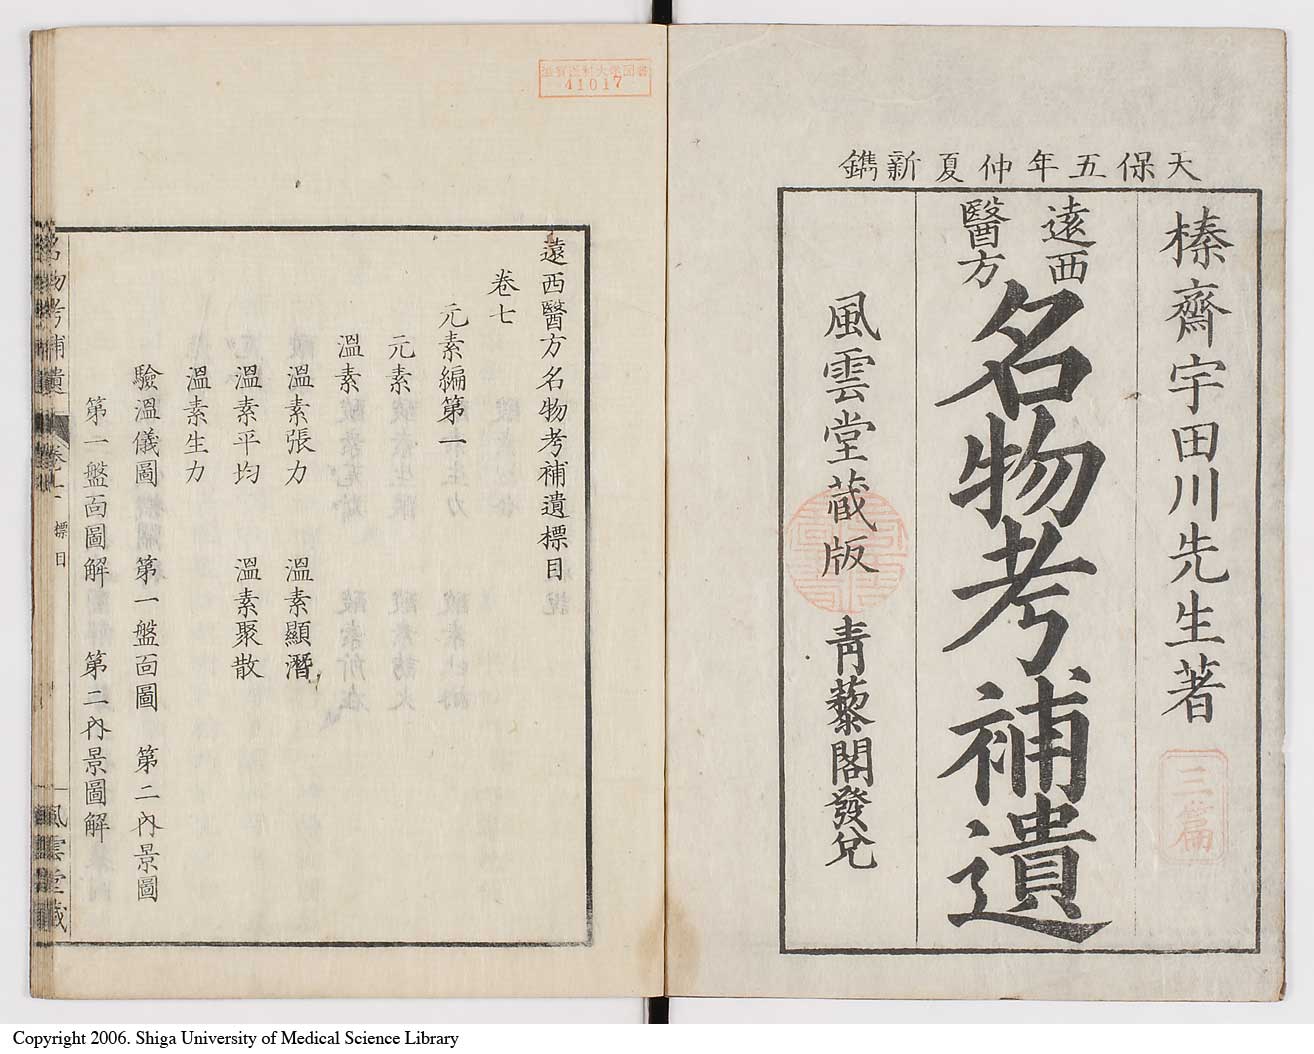 天保五年仲夏新鐫
榛齋宇田川先生著
三篇
遠西
醫方
名物考補遺
風雲堂蔵版
青藜閣發兌
滋賀医科大学図書
41017
遠西醫方名物考補遺標目
卷七
元素編第一
元素
溫素
溫素張力 溫素顯潛
溫素平均 溫素聚散
溫素生力
驗溫儀圖 第一盤面圖 第二內景圖
第一盤面圖解 第二內景圖解
名物考補遺 卷七 標目 風雲堂藏
Copyright 2006. Shiga University of Medical Science Library